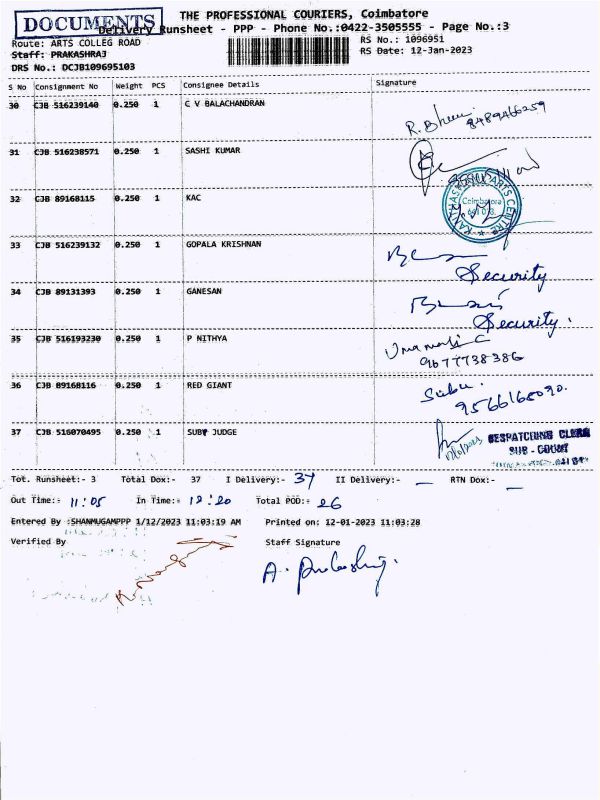 DOCUMENTS
THE PROFESSIONAL COURIERS, Coimbatore
Delivery Runsheet - PPP - Phone No.:0422-3505555 - Page No.:3
Route: ARTS COLLEG ROAD
RS No.: 1096951
Staff: PRAKASHRAJ
RS Date: 12-Jan-2023
DRS No.: DCJB109695103
S No Consignment No Weight PCS Consignee Details Signature
30 CJB 516239140 0.250 1 C V BALACHANDRAN
8489466259
31 CJB 516238571 0.250 1 SASHI KUMAR
32 CJB 89168115 0.250 1 KAC
Coimbatore
33 CJB 516239132 0.250 1 GOPALA KRISHNAN
Security
34 CJB 89131393 0.250 1 GANESAN
Security.
35 CJB 516193230 0.250 1 P NITHYA
9677738386
36 CJB 89168116 0.250 1 RED GIANT
9566168090.
37 CJB 516070495 0.250 1 SUB JUDGE
DESPATCHING CLERK
SUB - COURT
Tot. Runsheet:- 3 Total Dox:- 37 I Delivery:- 37 II Delivery:- — RTN Dox:- —
Out Time:- 11:05 In Time:- 12:20 Total POD:- 26
Entered By :SHANMUGAMPPP 1/12/2023 11:03:19 AM Printed on: 12-01-2023 11:03:28
Verified By Staff Signature